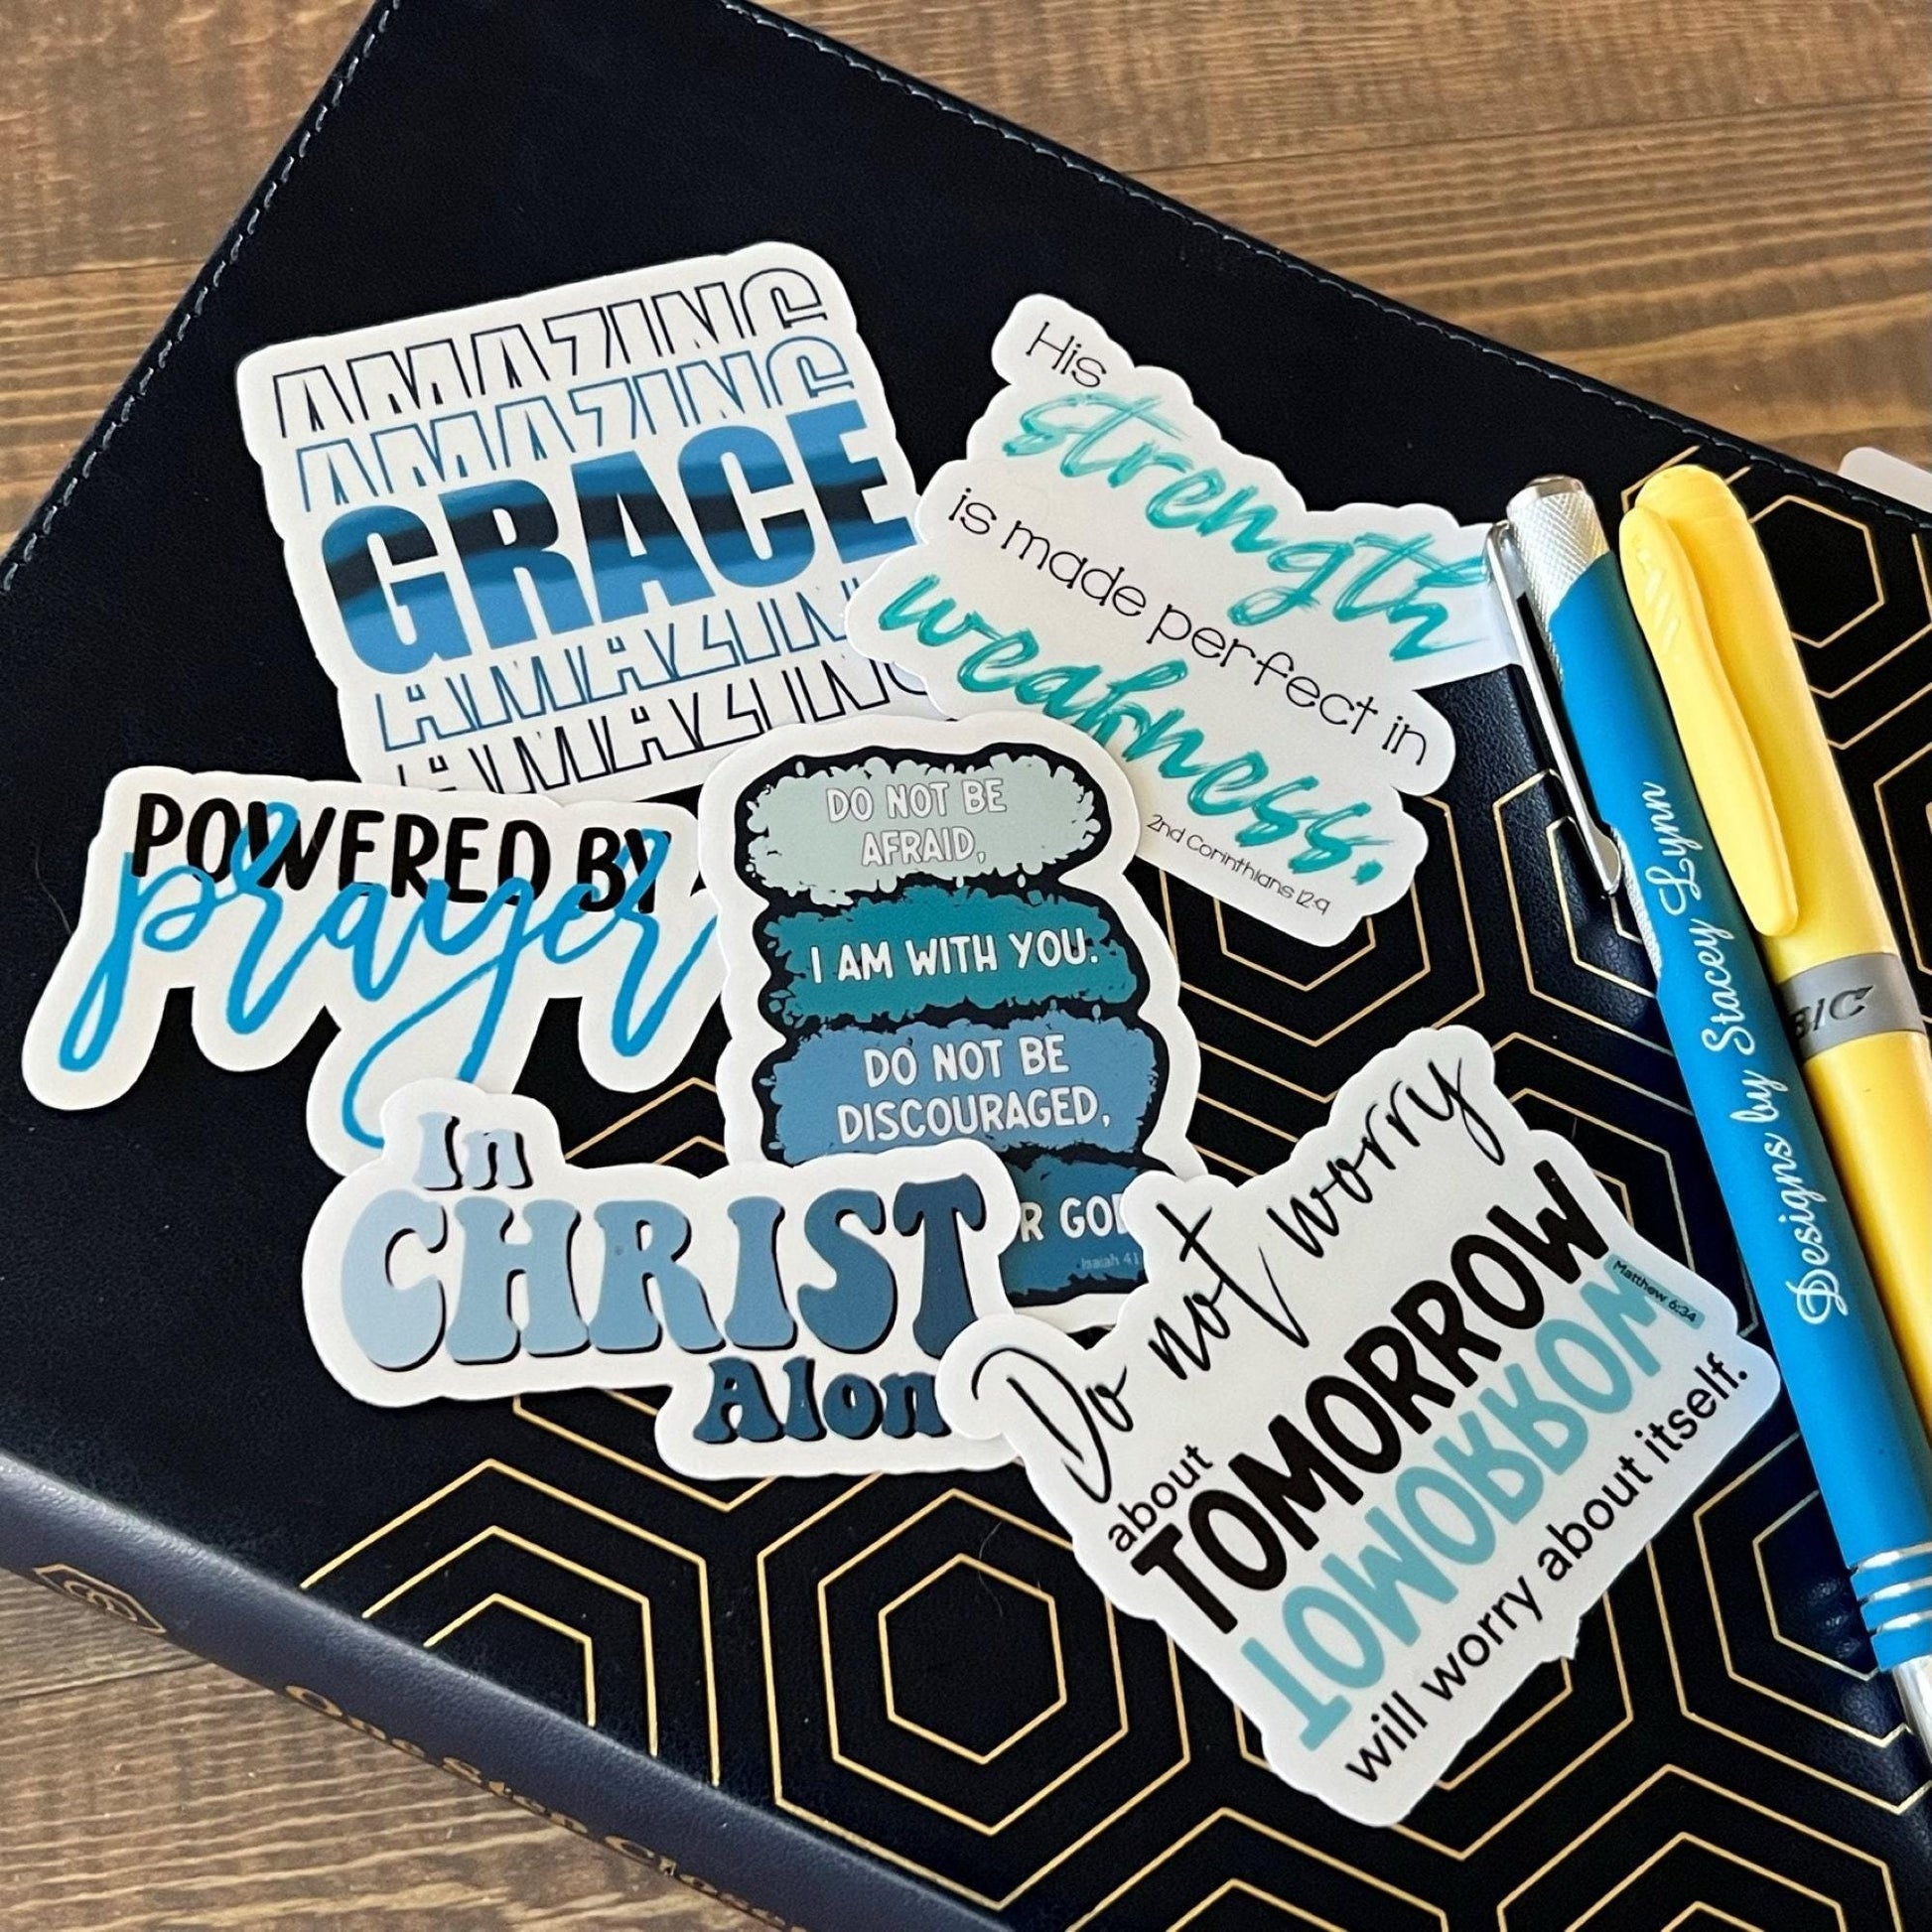 AMAZING
AMAZING
GRACE
AMAZING
AMAZING
His
strength
is made perfect in
weakness.
2nd Corinthians 12:9
POWERED BY
prayer
DO NOT BE
AFRAID,
I AM WITH YOU.
DO NOT BE
DISCOURAGED,
R GOD
Isaiah 41
In
CHRIST
Alone
Do not worry
about
TOMORROW
TOMORROW
Matthew 6:34
will worry about itself.
Designs by Stacey Lynn
BIC
One Step Closer